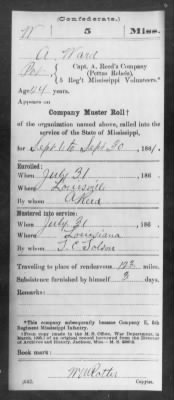 (Confederate.)
W 5 Miss.
A. Ward
Pvt., Capt. A. Reed's Company
(Pettus Rebels),
5 Reg't Mississippi Volunteers.*
Age 44 years.
Appears on
Company Muster Roll†
of the organization named above, called into the
service of the State of Mississippi,
for Sept 1 to Sept 30, 1861.
Enrolled:
When July 31, 186
Where Louisville
By whom A Reed
Mustered into service:
When July 31, 186
Where Louisiana
By whom T. C.
Traveling to place of rendezvous 123 miles.
Subsistence furnished by himself 3 days.
Remarks:
*This company subsequently became Company E, 5th
Regiment Mississippi Infantry.
†From copy made in the M. S. Office, War Department, in
March, of an original record borrowed from the Director
of Archives and History, Jackson, Miss.
Book mark:
Copyist.